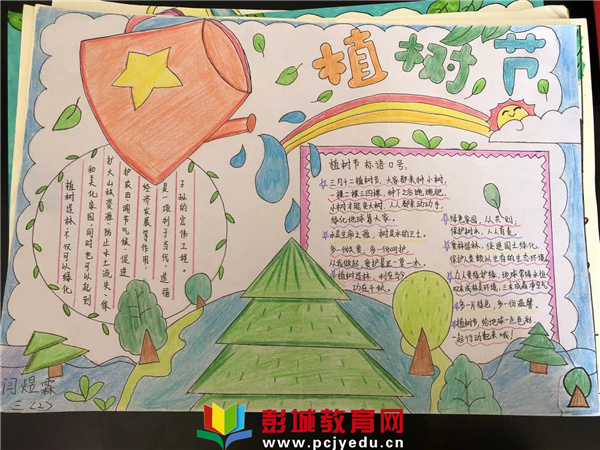 植树节
植树造林,不仅可以绿化
和美化家园,同时也可以起到
扩大山林资源、防止水土流失、保
护农田、调节气候、促进
经济发展等作用,
是一项利于当代、造福
子孙的宏伟工程。
植树节标语口号
三月十二植树节,大家都来种小树,
一棵二棵三四棵,种下之后施施肥,
小树才能变大树,人人都来动动手,
绿化地球靠大家。
水是生命之源,树是水的卫士。
多一份关爱,多一份呵护,
从我做起,爱护是一草一木。
植树造林,利在当今
功在千秋。
绿色家园,从共创,
保护树木,人人有责。
植树造林,促进国土绿化,
保护人类赖以生存的生态环境
人人爱护绿,地球常绿水恒
双木成林美环境,三木成森净空气
多一片绿色,多一份温馨
植树节,给地球一点色彩
一起行动起来哦!
闫煜霖
三〈2〉
彭城教育网
www.pcjyedu.cn